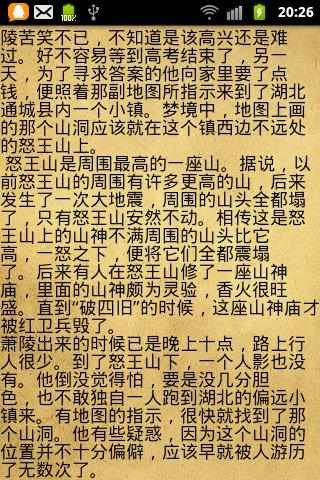 100%
20:26
陵苦笑不已，不知道是该高兴还是难
过。好不容易等到高考结束了，另一
天，为了寻求答案的他向家里要了点
钱，便照着那副地图所指示来到了湖北
通城县内一个小镇。梦境中，地图上画
的那个山洞应该就在这个镇西边不远处
的怒王山上。
怒王山是周围最高的一座山。据说，以
前怒王山的周围有许多更高的山，后来
发生了一次大地震，周围的山头全都塌
了，只有怒王山安然不动。相传这是怒
王山上的山神不满周围的山头比它
高，一怒之下，便将它们全都震塌
了。后来有人在怒王山修了一座山神
庙，里面的山神颇为灵验，香火很旺
盛。直到“破四旧”的时候，这座山神庙才
被红卫兵毁了。
萧陵出来的时候已是晚上十点，路上行
人很少。到了怒王山下，一个人影也没
有。他倒没觉得怕，要是没几分胆
色，也不敢独自一人跑到湖北的偏远小
镇来。有地图的指示，很快就找到了那
个山洞。他有些疑惑，因为这个山洞的
位置并不十分偏僻，应该早就被人游历
了无数次了。